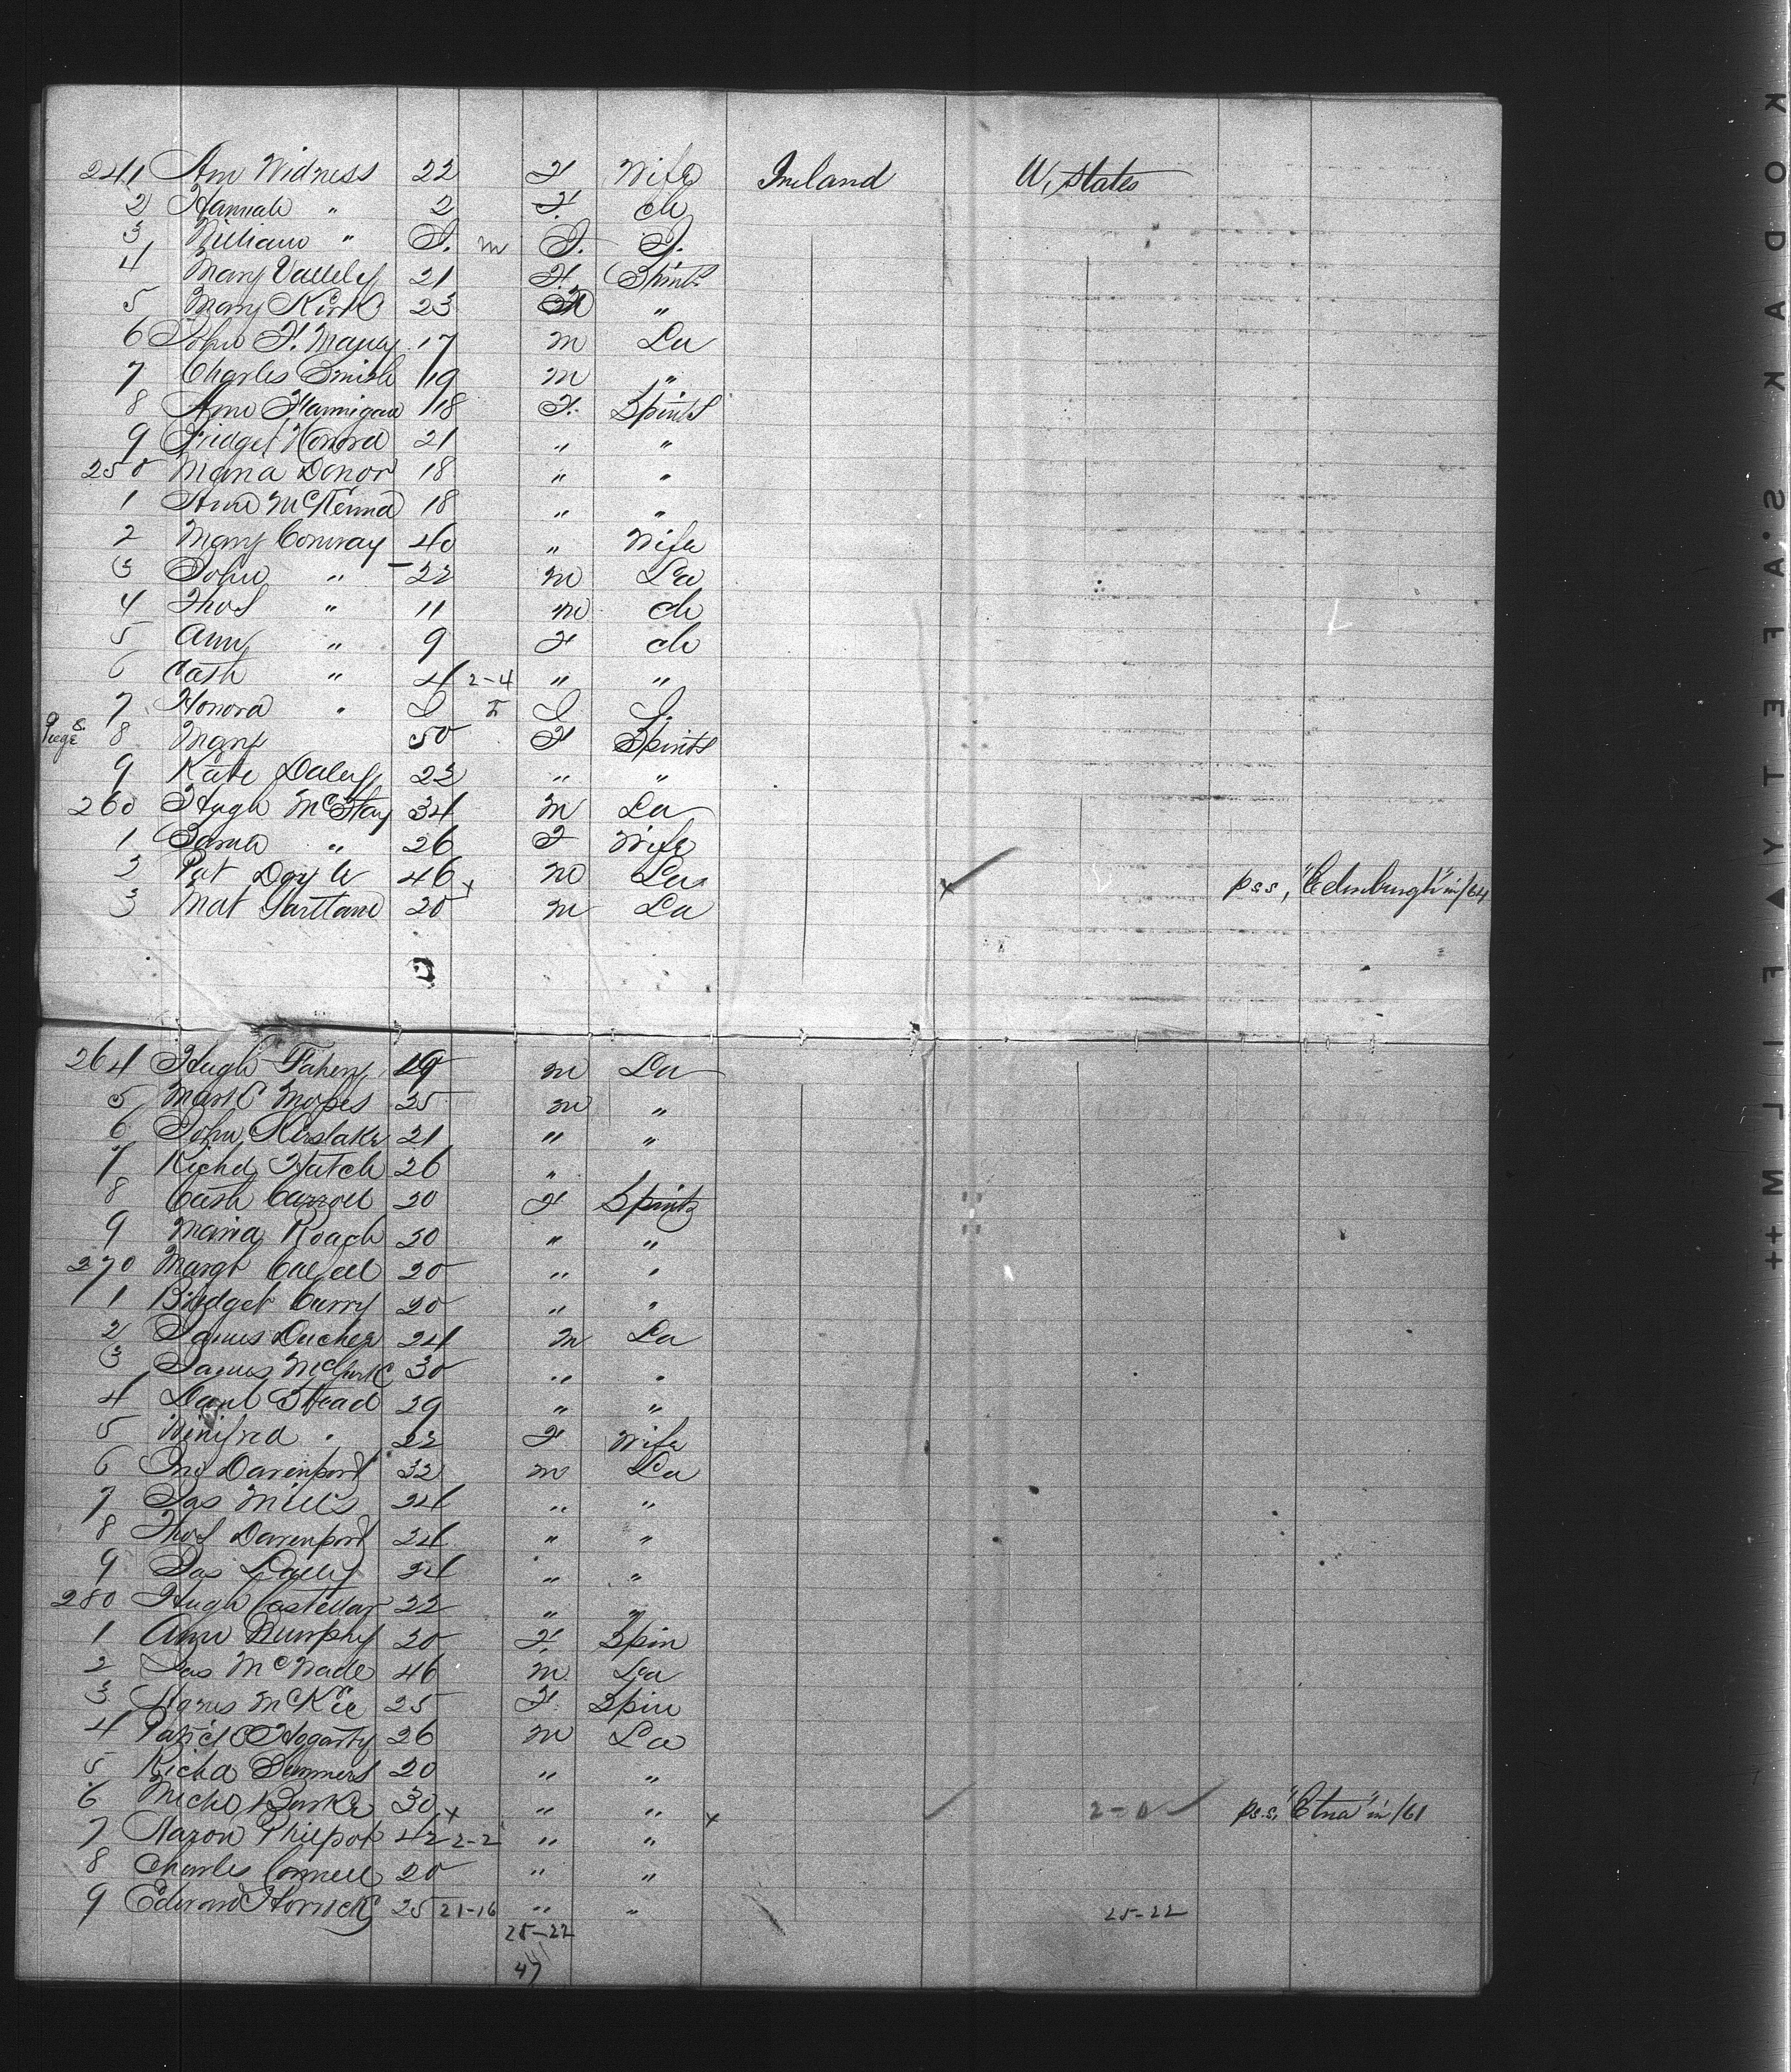 241 Ann Widness 22 F Wife Ireland U. States
2 Hannah " 2 F. ch
3 William " I. m I. I.
4 Mary Vallely 21 F. Spints
5 Mary Kirk 23 "
6 John F. 17 m La
7 Charles Smith 19 m "
8 Ann Flannigan 18 F. Spints
9 Bridget Honora 21 " "
250 Maria Donor 18 " "
1 Ann McKenna 18 " "
2 Mary Conway 40 " Wife
3 John " 22 m La
4 Thos " 11 m ch
5 Ann " 9 F ch
6 Cath " 4 2-4 " "
7 Honora " I I I.
8 Mary 50 F Spints
9 Kate Daley 22 " "
260 Hugh McStay 34 m La
1 Sarah " 26 F Wife
2 Pat Doyle 46 x m La x pss, "Edinburgh" in /64
3 Mat Harttane 20 m La
264 Hugh Fahery 19 m La
5 Mark Mopes 25 m "
6 John Kerslake 21 " "
7 Richd Hatch 26 "
8 Cath Carroll 20 F Spints
9 Maria Roach 20 " "
270 Margt 20 " "
1 Bridget Curry 20 " "
2 James 24 m La
3 James McGurk 30 " "
4 Danl Head 29 " "
5 Winifred " 22 F Wife
6 Jno Davenport 32 m La
7 Jas Mills 24 " "
8 Thos Davenport 24 " "
9 Jas Lally 24 " "
280 Hugh Costellar 22 " "
1 Ann Murphy 20 F Spin
2 Jas McWade 46 m La
3 Agnes McKee 25 F. Spin
4 Patrick Hogarty 26 m La
5 Richd Summers 20 " "
6 Michl Burke 30 x " " x 2-0 pss, "Etna" in /61
7 Aaron Philpot 42 2-2 " "
8 Charles Connell 20 " "
9 Edward Horrick 25 21-16 " " 25-22
25-22
47
KODAK·S.A'FETY▲FILM++